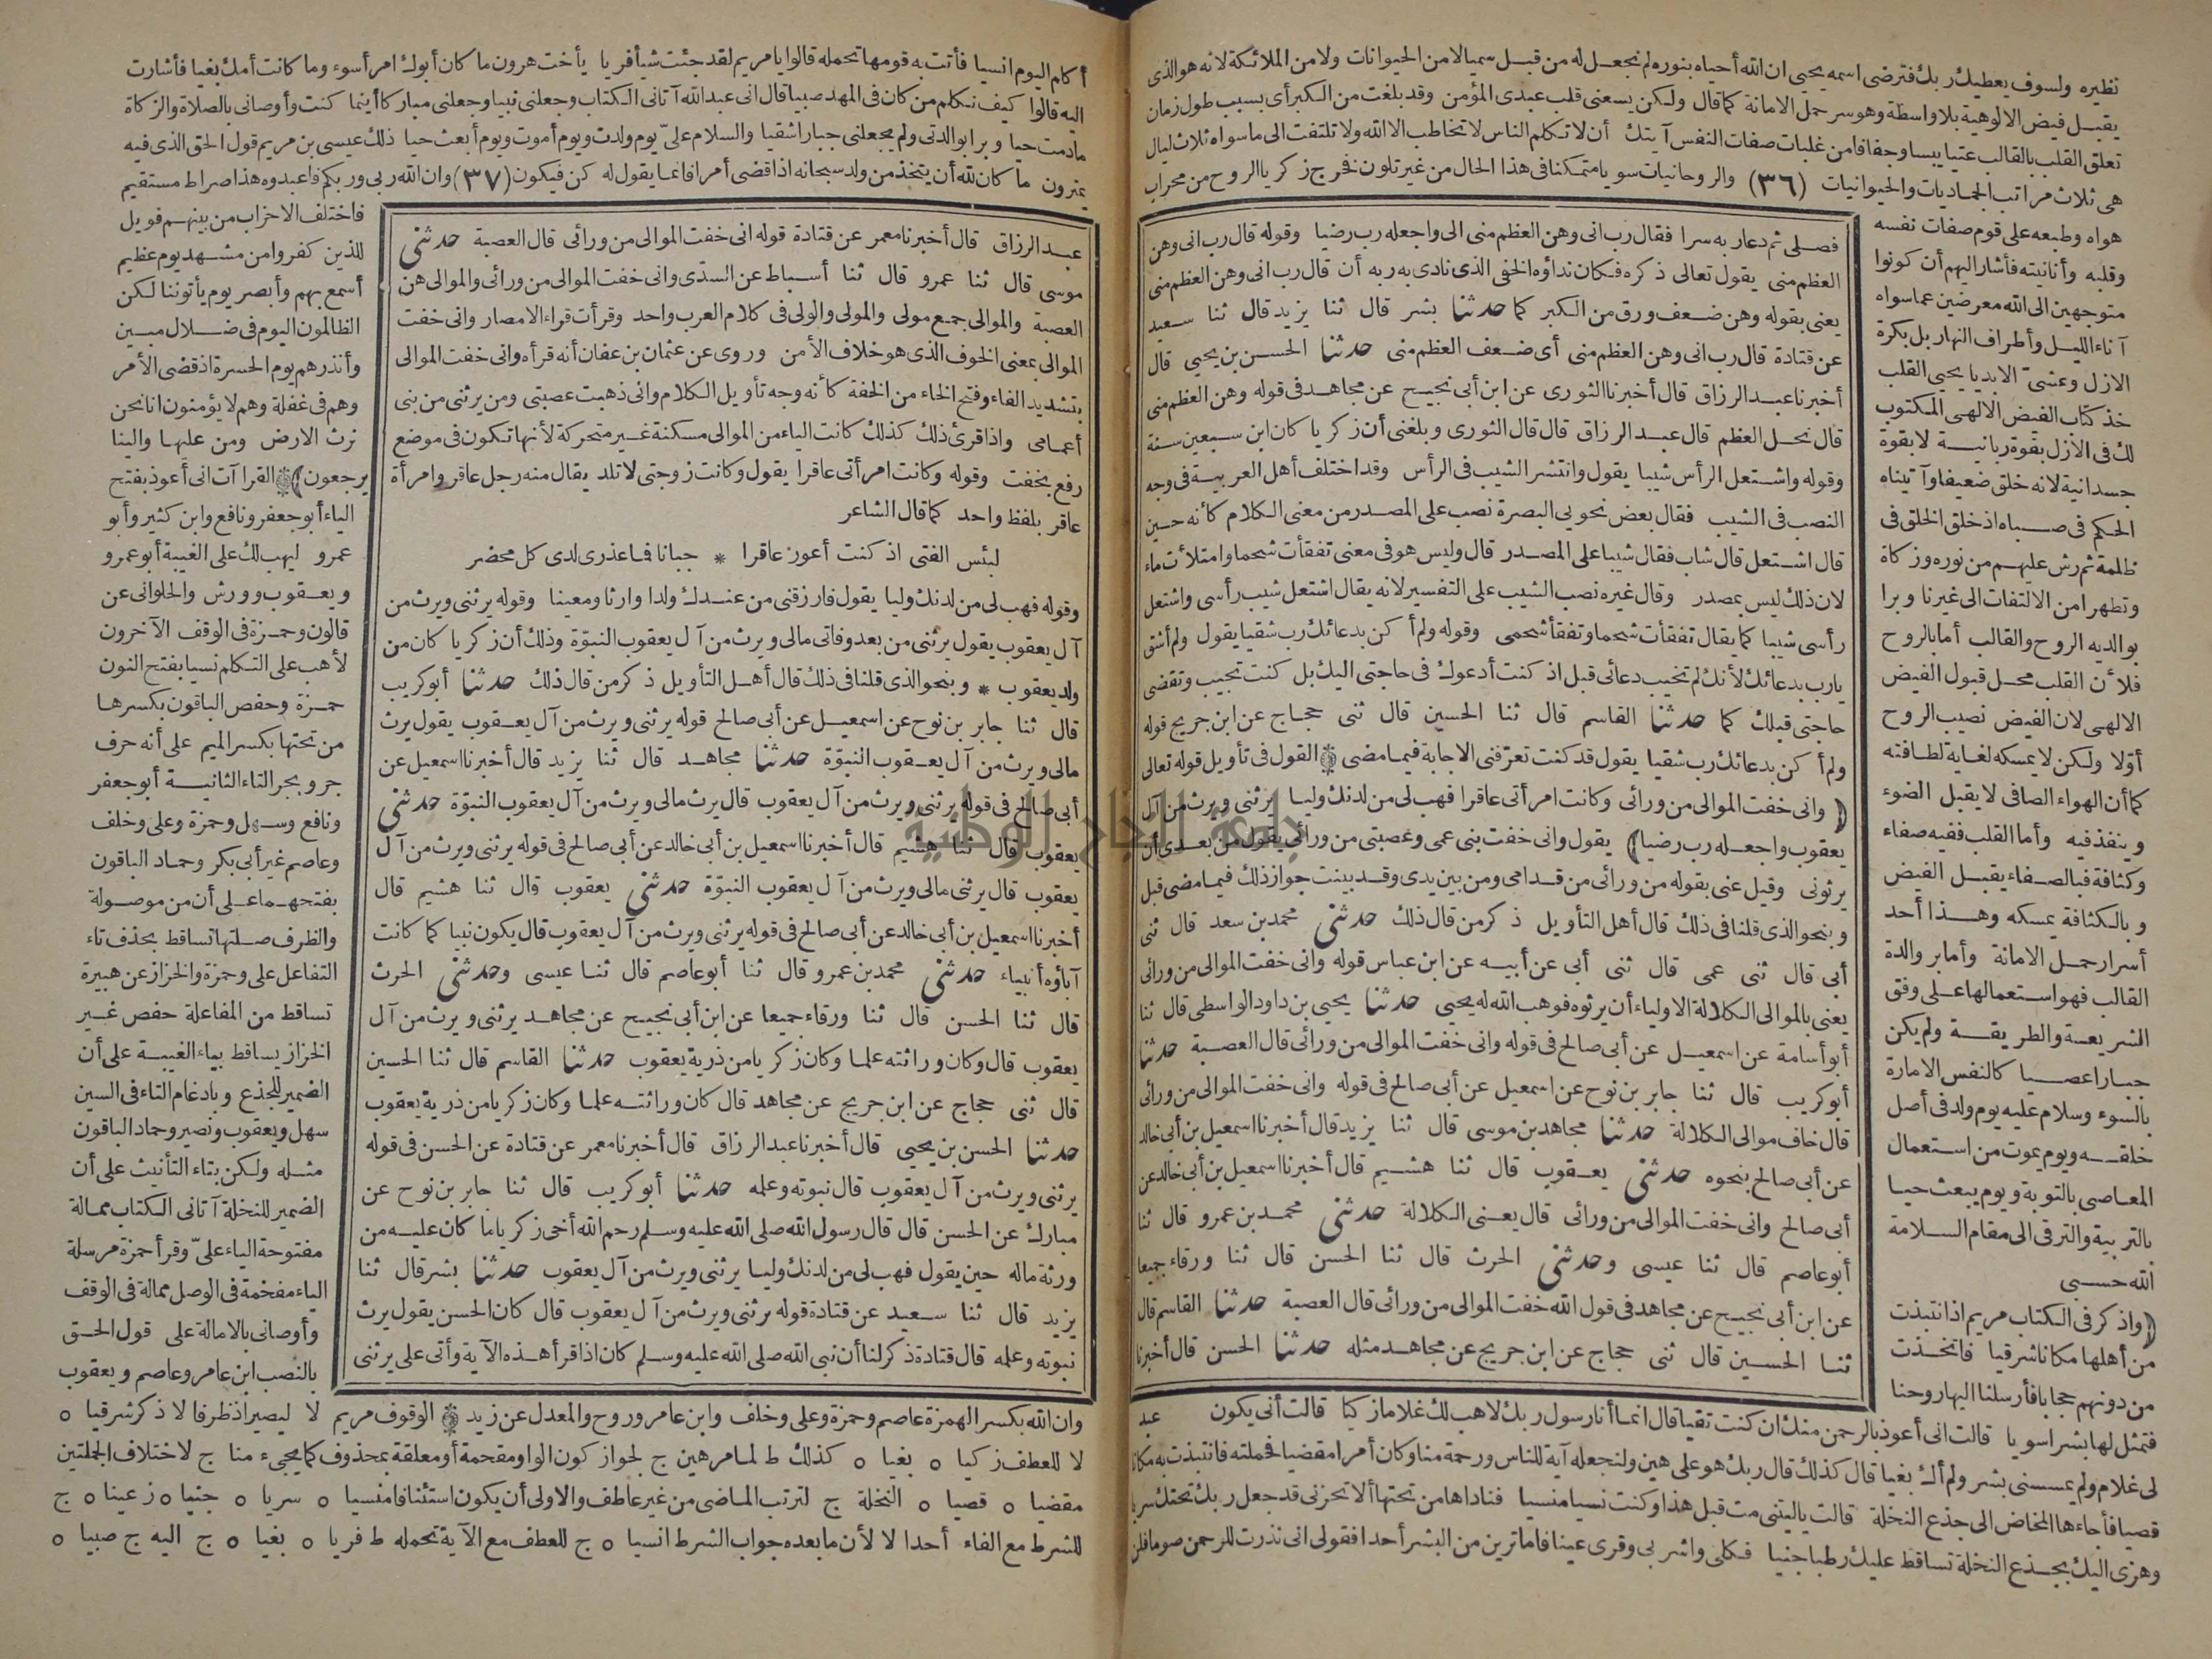 نظيره ولسوف يعطيك ربك فترضى اسمه يحيى ان الله أحياه بنوره لم نجعل له من قبل سميا لا من الحيوانات ولا من الملائكة لانه هو الذى
يقبل فيض الالوهية بلا واسطة وهو سر حمل الامانة كما قال ولكن يسعنى قلب عبدى المؤمن وقد بلغت من الكبر أى بسبب طول زمان
تعلق القلب بالقالب عتيا يبسا وجفافا من غلبات صفات النفس آيتك أن لا تكلم الناس لا تخاطب الا الله ولا تلتفت الى ما سواه ثلاث ليال
هى ثلاث مراتب الجماديات والحيوانيات (٣٦) والروحانيات سويا متمكنا فى هذا الحال من غير تلون فخرج زكريا الروح من محراب
هواه وطبعه على قوم صفات نفسه
وقلبه وأنانيته فأشار اليهم أن كونوا
متوجهين الى الله معرضين عما سواه
آناء الليل وأطراف النهار بل بكرة
الازل وعشىّ الابد يا يحيى القلب
خذ كتاب الفيض الالهى المكتوب
لك فى الأزل بقوة ربانية لا بقوة
جسدانية لانه خلق ضعيفا وآتيناه
الحكم فى صباه اذ خلق الخلق فى
ظلمة ثم رش عليهم من نوره وزكاة
وتطهرا من الالتفات الى غيرنا وبرا
بوالديه الروح والقالب أما بالروح
فلأن القلب محل قبول الفيض
الالهى لان الفيض نصيب الروح
أوّلا ولكن لا يمسكه لغاية لطافته
كما أن الهواء الصافى لا يقبل الضوء
وينفذ فيه وأما القلب ففيه صفاء
وكثافة فبالصفاء يقبل الفيض
وبالكثافة يمسكه وهذا أحد
أسرار حمل الامانة وأما بر والدة
القالب فهو استعمالها على وفق
الشريعة والطريقة ولم يكن
جبارا عصيا كالنفس الامارة
بالسوء وسلام عليه يوم ولد فى أصل
خلقه ويوم يموت من استعمال
المعاصى بالتوبة ويوم يبعث حيا
بالتربية والترقى الى مقام السلامة
الله حسبى
(واذكر فى الكتاب مريم اذ انتبذت
من أهلها مكانا شرقيا فاتخذت
من دونهم حجابا فأرسلنا اليها روحنا
فصلى ثم دعا ربه سرا فقال رب انى وهن العظم منى الى واجعله رب رضيا وقوله قال رب انى وهن
العظم منى يقول تعالى ذكره فكان نداؤه الخفى الذى نادى به ربه أن قال رب انى وهن العظم منى
يعنى بقوله وهن ضعف ورق من الكبر كما حدثنا بشر قال ثنا يزيد قال ثنا سعيد
عن قتادة قال رب انى وهن العظم منى أى ضعف العظم منى حدثنا الحسن بن يحيى قال
أخبرنا عبد الرزاق قال أخبرنا الثورى عن ابن أبى نجيح عن مجاهد فى قوله وهن العظم منى
قال نحل العظم قال عبد الرزاق قال قال الثورى وبلغنى أن زكريا كان ابن سبعين سنة
وقوله واشتعل الرأس شيبا يقول وانتشر الشيب فى الرأس وقد اختلف أهل العربية فى وجه
النصب فى الشيب فقال بعض نحويى البصرة نصب على المصدر من معنى الكلام كأنه حين
قال اشتعل قال شاب فقال شيبا على المصدر قال وليس هو فى معنى تفقأت شحما وامتلأت ماء
لان ذلك ليس بمصدر وقال غيره نصب الشيب على التفسير لانه يقال اشتعل شيب رأسى واشتعل
رأسى شيبا كما يقال تفقأت شحما وتفقأ شحمى وقوله ولم أكن بدعائك رب شقيا يقول ولم أشق
يا رب بدعائك لأنك لم تخيب دعائى قبل اذ كنت أدعوك فى حاجتى اليك بل كنت تجيب وتقضى
حاجتى قبلك كما حدثنا القاسم قال ثنا الحسين قال ثنى حجاج عن ابن جريج قوله
ولم أكن بدعائك رب شقيا يقول قد كنت تعرّفنى الاجابة فيما مضى القول فى تأويل قوله تعالى
(وانى خفت الموالى من ورائى وكانت امرأتى عاقرا فهب لى من لدنك وليا يرثنى ويرث من آل
يعقوب واجعله رب رضيا) يقول وانى خفت بنى عمى وعصبتى من ورائى يقول من بعدى أن
يرثونى وقيل عنى بقوله من ورائى من قدامى ومن بين يدى وقد بينت جواز ذلك فيما مضى قبل
وبنحو الذى قلنا فى ذلك قال أهل التأويل ذكر من قال ذلك حدثنى محمد بن سعد قال ثنى
أبى قال ثنى عمى قال ثنى أبى عن أبيه عن ابن عباس قوله وانى خفت الموالى من ورائى
يعنى بالموالى الكلالة الاولياء أن يرثوه فوهب الله له يحيى حدثنا يحيى بن داود الواسطى قال ثنا
أبو أسامة عن اسمعيل عن أبى صالح فى قوله وانى خفت الموالى من ورائى قال العصبة حدثنا
أبو كريب قال ثنا جابر بن نوح عن اسمعيل عن أبى صالح فى قوله وانى خفت الموالى من ورائى
قال خاف موالى الكلالة حدثنا مجاهد بن موسى قال ثنا يزيد قال أخبرنا اسمعيل بن أبى خالد
عن أبى صالح بنحوه حدثنى يعقوب قال ثنا هشيم قال أخبرنا اسمعيل بن أبى خالد عن
أبى صالح وانى خفت الموالى من ورائى قال يعنى الكلالة حدثنى محمد بن عمرو قال ثنا
أبو عاصم قال ثنا عيسى وحدثنى الحرث قال ثنا الحسن قال ثنا ورقاء جميعا
عن ابن أبى نجيح عن مجاهد فى قول الله خفت الموالى من ورائى قال العصبة حدثنا القاسم قال
ثنا الحسين قال ثنى حجاج عن ابن جريج عن مجاهد مثله حدثنا الحسن قال أخبرنا
عبد
فتمثل لها بشرا سويا قالت انى أعوذ بالرحمن منك ان كنت تقيا قال انما أنا رسول ربك لاهب لك غلاما زكيا قالت أنى يكون
لى غلام ولم يمسسنى بشر ولم أك بغيا قال كذلك قال ربك هو على هين ولنجعله آية للناس ورحمة منا وكان أمرا مقضيا فحملته فانتبذت به مكانا
قصيا فأجاءها المخاض الى جذع النخلة قالت يا ليتنى مت قبل هذا وكنت نسيا منسيا فناداها من تحتها ألا تحزنى قد جعل ربك تحتك سريا
وهزى اليك بجذع النخلة تساقط عليك رطبا جنيا فكلى واشربى وقرى عينا فاما ترين من البشر أحدا فقولى انى نذرت للرحمن صوما فلن
أكلم اليوم انسيا فأتت به قومها تحمله قالوا يا مريم لقد جئت شيأ فريا يأخت هرون ما كان أبوك امرأ سوء وما كانت أمك بغيا فأشارت
اليه قالوا كيف نكلم من كان فى المهد صبيا قال انى عبد الله آتانى الكتاب وجعلنى نبيا وجعلنى مباركا أينما كنت وأوصانى بالصلاة والزكاة
ما دمت حيا وبرا بوالدتى ولم يجعلنى جبارا شقيا والسلام علىّ يوم ولدت ويوم أموت ويوم أبعث حيا ذلك عيسى بن مريم قول الحق الذى فيه
يمترون ما كان لله أن يتخذ من ولد سبحانه اذا قضى أمرا فانما يقول له كن فيكون (٣٧) وان الله ربى وربكم فاعبدوه هذا صراط مستقيم
عبد الرزاق قال أخبرنا معمر عن قتادة قوله انى خفت الموالى من ورائى قال العصبة حدثنى
موسى قال ثنا عمرو قال ثنا أسباط عن السدّى وانى خفت الموالى من ورائى والموالى هن
العصبة والموالى جمع مولى والمولى والولى فى كلام العرب واحد وقرأت قراء الامصار وانى خفت
الموالى بمعنى الخوف الذى هو خلاف الأمن وروى عن عثمان بن عفان أنه قرأه وانى خفت الموالى
بتشديد الفاء وفتح الخاء من الخفة كأنه وجه تأويل الكلام وانى ذهبت عصبتى ومن يرثنى من بنى
أعمامى واذا قرئ ذلك كذلك كانت الياء من الموالى مسكنة غير متحركة لأنها تكون فى موضع
رفع بخفت وقوله وكانت امرأتى عاقرا يقول وكانت زوجتى لا تلد يقال منه رجل عاقر وامرأة
عاقر بلفظ واحد كما قال الشاعر
لبئس الفتى اذ كنت أعور عاقرا * جبانا فما عذرى لدى كل محضر
وقوله فهب لى من لدنك وليا يقول فارزقنى من عندك ولدا وارثا ومعينا وقوله يرثنى ويرث من
آل يعقوب يقول يرثنى من بعد وفاتى مالى ويرث من آل يعقوب النبوّة وذلك أن زكريا كان من
ولد يعقوب * وبنحو الذى قلنا فى ذلك قال أهل التأويل ذكر من قال ذلك حدثنا أبو كريب
قال ثنا جابر بن نوح عن اسمعيل عن أبى صالح قوله يرثنى ويرث من آل يعقوب يقول يرث
مالى ويرث من آل يعقوب النبوّة حدثنا مجاهد قال ثنا يزيد قال أخبرنا اسمعيل عن
أبى صالح فى قوله يرثنى ويرث من آل يعقوب قال يرث مالى ويرث من آل يعقوب النبوّة حدثنى
يعقوب قال ثنا هشيم قال أخبرنا اسمعيل بن أبى خالد عن أبى صالح فى قوله يرثنى ويرث من آل
يعقوب قال يرثنى مالى ويرث من آل يعقوب النبوّة حدثنى يعقوب قال ثنا هشيم قال
أخبرنا اسمعيل بن أبى خالد عن أبى صالح فى قوله يرثنى ويرث من آل يعقوب قال يكون نبيا كما كانت
آباؤه أنبياء حدثنى محمد بن عمرو قال ثنا أبو عاصم قال ثنا عيسى وحدثنى الحرث
قال ثنا الحسن قال ثنا ورقاء جميعا عن ابن أبى نجيح عن مجاهد يرثنى ويرث من آل
يعقوب قال وكان وراثته علما وكان زكريا من ذرية يعقوب حدثنا القاسم قال ثنا الحسين
قال ثنى حجاج عن ابن جريج عن مجاهد قال كان وراثته علما وكان زكريا من ذرية يعقوب
حدثنا الحسن بن يحيى قال أخبرنا عبد الرزاق قال أخبرنا معمر عن قتادة عن الحسن فى قوله
يرثنى ويرث من آل يعقوب قال نبوته وعلمه حدثنا أبو كريب قال ثنا جابر بن نوح عن
مبارك عن الحسن قال قال رسول الله صلى الله عليه وسلم رحم الله أخى زكريا ما كان عليه من
ورثة ماله حين يقول فهب لى من لدنك وليا يرثنى ويرث من آل يعقوب حدثنا بشر قال ثنا
يزيد قال ثنا سعيد عن قتادة قوله يرثنى ويرث من آل يعقوب قال كان الحسن يقول يرث
نبوته وعلمه قال قتادة ذكر لنا أن نبى الله صلى الله عليه وسلم كان اذا قرأ هذه الآية وأتى على يرثنى
فاختلف الاحزاب من بينهم فويل
للذين كفروا من مشهد يوم عظيم
أسمع بهم وأبصر يوم يأتوننا لكن
الظالمون اليوم فى ضلال مبين
وأنذرهم يوم الحسرة اذ قضى الأمر
وهم فى غفلة وهم لا يؤمنون انا نحن
نرث الارض ومن عليها والينا
يرجعون) القرا آت انى أعوذ بفتح
الياء أبو جعفر ونافع وابن كثير وأبو
عمرو ليهب لك على الغيبة أبو عمرو
ويعقوب وورش والحلوانى عن
قالون وحمزة فى الوقف الآخرون
لأهب على التكلم نسيا بفتح النون
حمزة وحفص الباقون بكسرها
من تحتها بكسر الميم على أنه حرف
جر وبجر التاء الثانية أبو جعفر
ونافع وسهل وحمزة وعلى وخلف
وعاصم غير أبى بكر وحماد الباقون
بفتحهما على أن من موصولة
والظرف صلتها تساقط بحذف تاء
التفاعل على وحمزة والخزاز عن هبيرة
تساقط من المفاعلة حفص غير
الخزاز يساقط بياء الغيبة على أن
الضمير للجذع وبادغام التاء فى السين
سهل ويعقوب ونصير وحماد الباقون
مثله ولكن بتاء التأنيث على أن
الضمير للنخلة آتانى الكتاب ممالة
مفتوحة الياء علىّ وقرأ حمزة مرسلة
الياء مفخمة فى الوصل ممالة فى الوقف
وأوصانى بالامالة على قول الحق
بالنصب ابن عامر وعاصم ويعقوب
وان الله بكسر الهمزة عاصم وحمزة وعلى وخلف وابن عامر وروح والمعدل عن زيد الوقوف مريم لا ليصير اذ ظرفا لا ذكر شرقيا ه
لا للعطف زكيا ه بغيا ه كذلك ط لما مر هين ج لجواز كون الواو مقحمة أو معلقة بمحذوف كما يجىء منا ج لاختلاف الجملتين
مقضيا ه قصيا ه النخلة ج لترتب الماضى من غير عاطف والاولى أن يكون استئنافا منسيا ه سريا ه جنيا ه ز عينا ه ج
للشرط مع الفاء أحدا لا لأن ما بعده جواب الشرط انسيا ه ج للعطف مع الآية تحمله ط فريا ه بغيا ه ج اليه ج صبيا ه
جامعة النجاح الوطنية